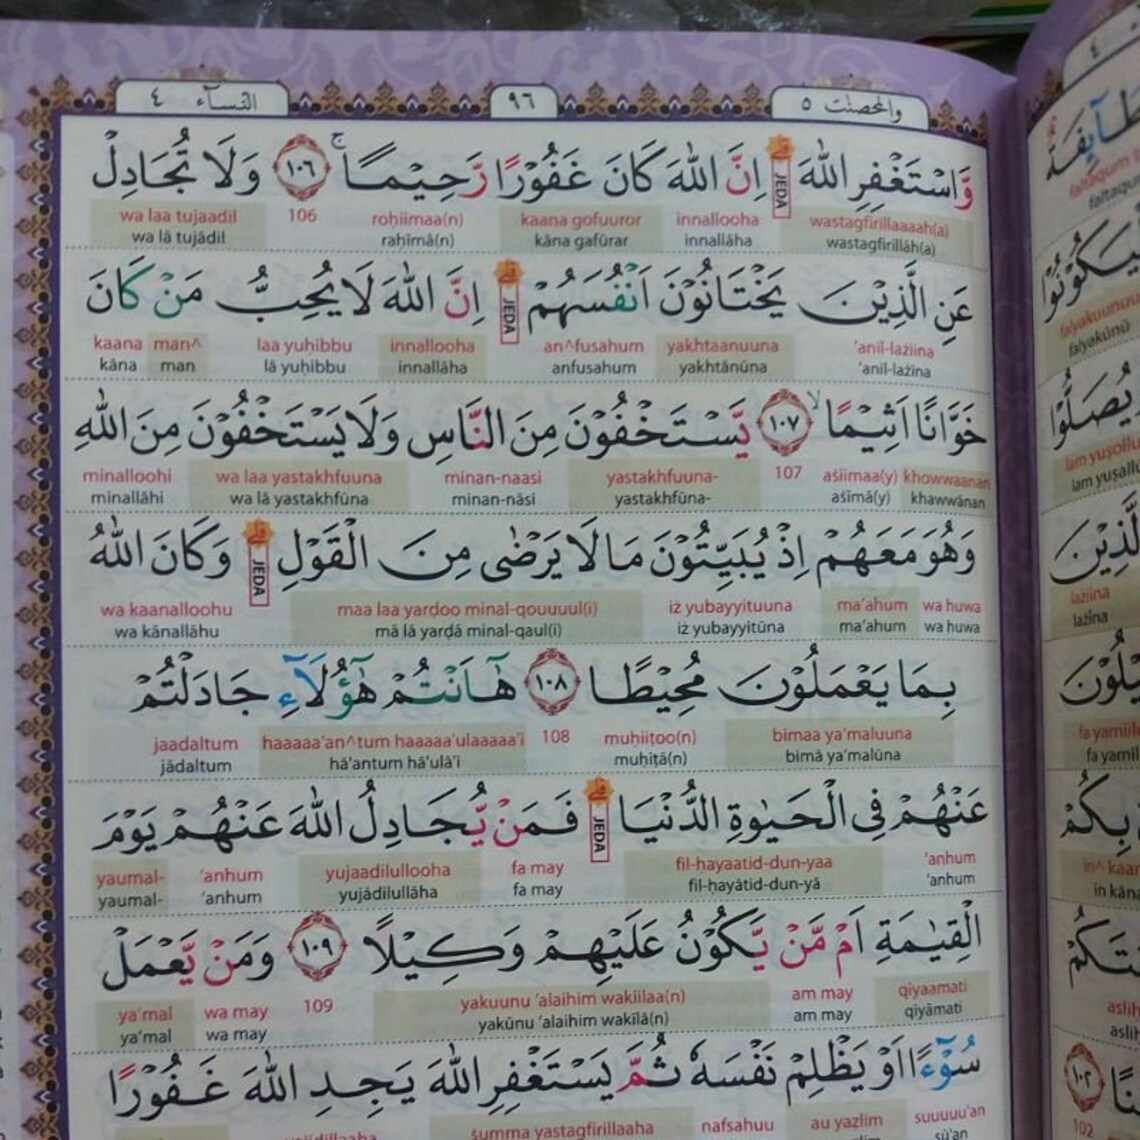 النساۤء ٤
٩٦
والمحصنٰت ٥
وَّاسْتَغْفِرِ اللّٰهَ ۗاِنَّ اللّٰهَ كَانَ غَفُوْرًا رَّحِيْمًاۚ ١٠٦ وَلَا تُجَادِلْ
JEDA
wastagfirillaaaah(a) innallooha kaana gofuuror roḥiimaa(n) 106 wa laa tujaadil
wastagfirillāh(a) innallāha kāna gafūrar raḥīmā(n) wa lā tujādil
عَنِ الَّذِيْنَ يَخْتَانُوْنَ اَنْفُسَهُمْ ۗاِنَّ اللّٰهَ لَا يُحِبُّ مَنْ كَانَ
JEDA
‘anil-lażiina yakhtaanuuna an^fusahum innallooha laa yuhibbu man^ kaana
‘anil-lażīna yakhtānūna anfusahum innallāha lā yuḥibbu man kāna
خَوَّانًا اَثِيْمًاۙ ١٠٧ يَّسْتَخْفُوْنَ مِنَ النَّاسِ وَلَا يَسْتَخْفُوْنَ مِنَ اللّٰهِ
khowwaanan aśiimaa(y) 107 yastakhfuuna- minan-naasi wa laa yastakhfuuna minalloohi
khawwānan aśīmā(y) yastakhfūna- minan-nāsi wa lā yastakhfūna minallāhi
وَهُوَ مَعَهُمْ اِذْ يُبَيِّتُوْنَ مَا لَا يَرْضٰى مِنَ الْقَوْلِ ۗوَكَانَ اللّٰهُ
JEDA
wa huwa ma’ahum iż yubayyituuna maa laa yardoo minal-qouuuul(i) wa kaanalloohu
wa huwa ma’ahum iż yubayyitūna mā lā yarḍā minal-qaul(i) wa kānallāhu
بِمَا يَعْمَلُوْنَ مُحِيْطًا ١٠٨ هٰٓاَنْتُمْ هٰٓؤُلَاۤءِ جَادَلْتُمْ
bimaa ya’maluuna muḥiiṭoo(n) 108 haaaaa’an^tum haaaaa’ulaaaaa’i jaadaltum
bimā ya’malūna muḥīṭā(n) hā’antum hā’ulā’i jādaltum
عَنْهُمْ فِى الْحَيٰوةِ الدُّنْيَا ۗفَمَنْ يُّجَادِلُ اللّٰهَ عَنْهُمْ يَوْمَ
JEDA
‘anhum fil-ḥayaatid-dun-yaa fa may yujaadilullooha ‘anhum yaumal-
‘anhum fil-ḥayātid-dun-yā fa may yujādilullāha ‘anhum yaumal-
الْقِيٰمَةِ اَمْ مَّنْ يَّكُوْنُ عَلَيْهِمْ وَكِيْلًا ١٠٩ وَمَنْ يَّعْمَلْ
qiyaamati am may yakuunu ‘alaihim wakiilaa(n) 109 wa may ya’mal
qiyāmati am may yakūnu ‘alaihim wakīlā(n) wa may ya’mal
سُوْۤءًا اَوْ يَظْلِمْ نَفْسَهٗ ثُمَّ يَسْتَغْفِرِ اللّٰهَ يَجِدِ اللّٰهَ غَفُوْرًا
suuuu’an au yaẓlim nafsahuu śumma yastagfirillaaha